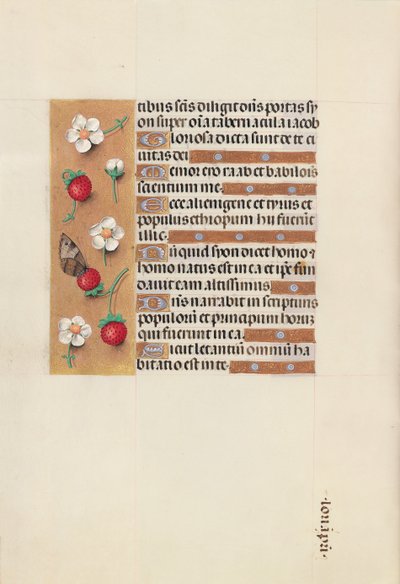 tibus scīs diligit dn̄s portas sy
on super oīa tabernacula iacob
Gloriosa dicta sunt de te ci
uitas dei
Memor ero raab et babilois
scientium me
Ecce alienigene et tyrus et
populus ethiopum hii fuerūt
illic
Nūquid syon dicet homo ⁊
homo natus est in ea et ip̄e fun
dauit eam altissimus
Dn̄s narrabit in scripturis
populorū et principum horū
qui fuerunt in ea
Sicut letantiū omniū ha
bitatio est in te